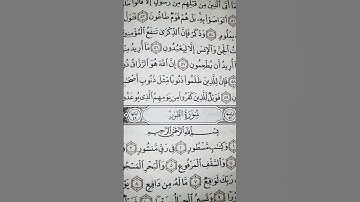 أَتَى ٱلَّذِينَ مِن قَبْلِهِم مِّن رَّسُولٍ إِلَّا قَالُوا۟
أَتَوَاصَوْا۟ بِهِۦ بَلْ هُمْ قَوْمٌ طَاغُونَ ٥٣
بِمَلُومٍ ٥٤ وَذَكِّرْ فَإِنَّ ٱلذِّكْرَىٰ تَنفَعُ ٱلْمُؤْمِنِينَ
ٱلْجِنَّ وَٱلْإِنسَ إِلَّا لِيَعْبُدُونِ ٥٦ مَآ أُرِيدُ
أُرِيدُ أَن يُطْعِمُونِ ٥٧ إِنَّ ٱللَّهَ هُوَ ٱلرَّزَّاقُ ذُو
لِلَّذِينَ ظَلَمُوا۟ ذَنُوبًا مِّثْلَ ذَنُوبِ أَصْحَٰبِ
فَوَيْلٌ لِّلَّذِينَ كَفَرُوا۟ مِن يَوْمِهِمُ ٱلَّذِى يُوعَدُ
سُورَةُ ٱلطُّورِ
بِسْمِ ٱللَّهِ ٱلرَّحْمَٰنِ ٱلرَّحِيمِ
وَكِتَٰبٍ مَّسْطُورٍ ٢ فِى رَقٍّ مَّنشُورٍ ٣
وَٱلسَّقْفِ ٱلْمَرْفُوعِ ٥ وَٱلْبَحْرِ ٱلْمَسْجُ
رَبِّكَ لَوَٰقِعٌ ٧ مَّا لَهُۥ مِن دَافِعٍ ٨